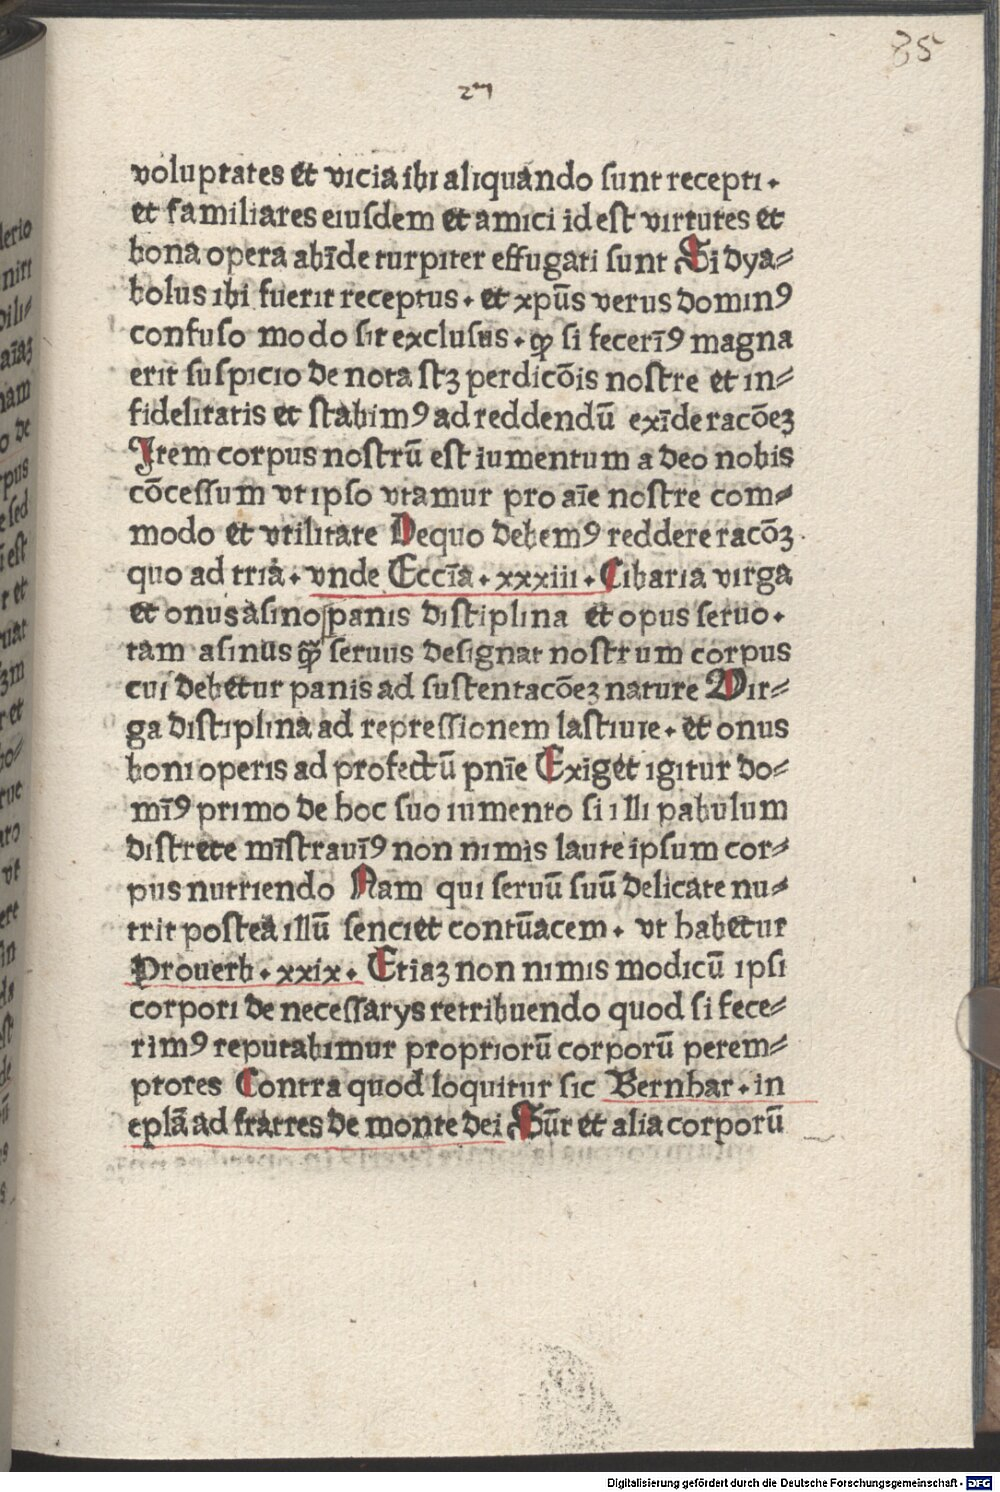 85
27
voluptates et vicia ibi aliquando sunt recepti .
et familiares eiusdem et amici id est virtutes et
bona opera abīde turpiter effugati sunt Si dya⸗
bolus ibi fuerit receptus . et xpūs verus domin9
confuso modo sit exclusus . ꝙ si fecerī9 magna
erit suspicio de nota stꝫ perdicōis nostre et in⸗
fidelitatis et stabim9 ad reddendū exīde racōeꝫ
Item corpus nostrū est iumentum a deo nobis
cōcessum vt ipso vtamur pro aīe nostre com⸗
modo et vtilitate Dequo debem9 reddere racōꝫ
quo ad tria . vnde Eccīa . xxxiii . Cibaria virga
et onus asino panis disciplina et opus seruo .
tam asinus ꝙ̄ seruus designat nostrum corpus
cui debetur panis ad sustentacōeꝫ nature Vir⸗
ga disciplina ad repressionem lasciuie . et onus
boni operis ad profectū pnīe Exiget igitur do⸗
mī9 primo de hoc suo iumento si illi pabulum
discrete mīstrauī9 non nimis laute ipsum cor⸗
pus nutriendo Nam qui seruū suū delicate nu⸗
trit postea illū senciet contūacem . vt habetur
Prouerb . xxix . Etiaꝫ non nimis modicū ipsi
corpori de necessarys retribuendo quod si fece⸗
rim9 reputabimur propriorū corporū perem⸗
ptores Contra quod loquitur sic Bernhar . in
eplā ad fratres de monte dei Sūt et alia corporū
Digitalisierung gefördert durch die Deutsche Forschungsgemeinschaft - DFG